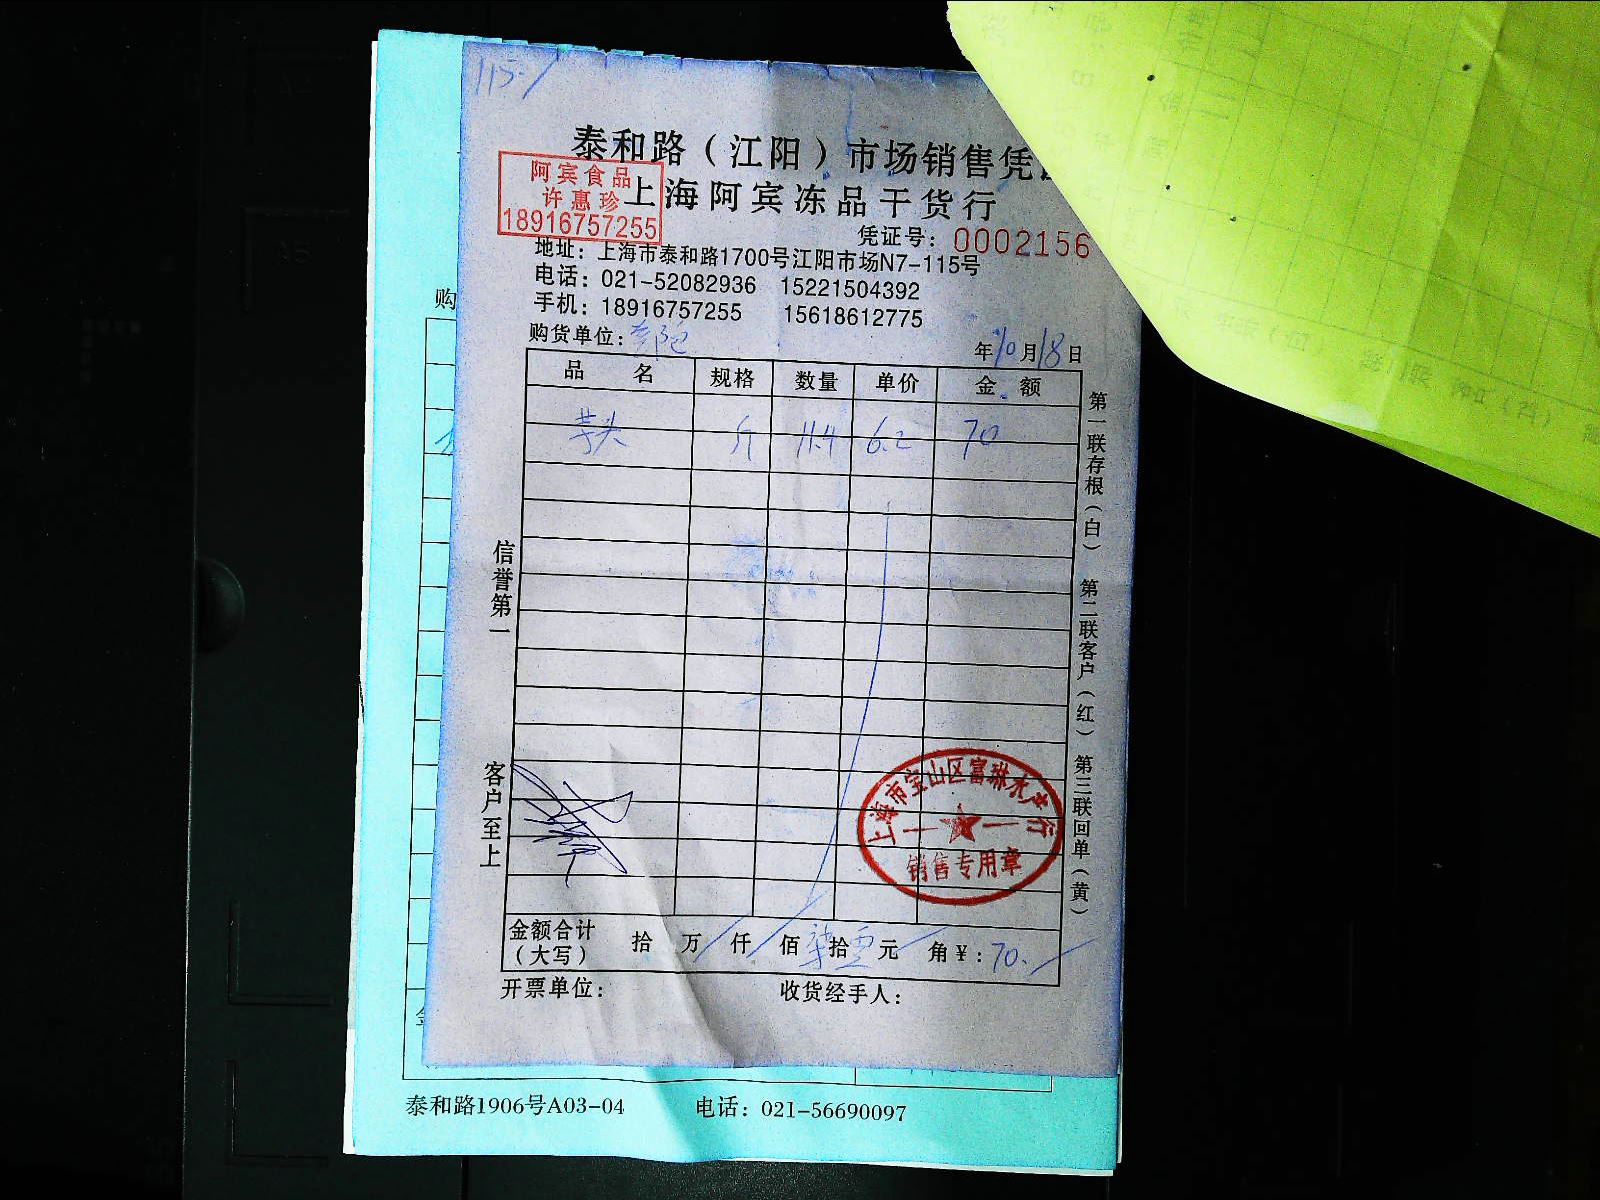 115.
泰和路（江阳）市场销售凭
阿宾食品
许惠珍
18916757255
上海阿宾冻品干货行
凭证号：0002156
地址：上海市泰和路1700号江阳市场N7-115号
电话：021-52082936 15221504392
手机：18916757255 15618612775
购货单位：
年10月18日
品名 规格 数量 单价 金额
芋头 斤 11.4 6.2 70
信誉第一
客户至上
第一联存根（白）
第二联客户（红）
第三联回单（黄）
上海市宝山区富琳水产行
销售专用章
金额合计（大写） 拾 万 仟 佰 柒拾 元 角 ¥：70.
开票单位： 收货经手人：
购
泰和路1906号A03-04 电话：021-56690097